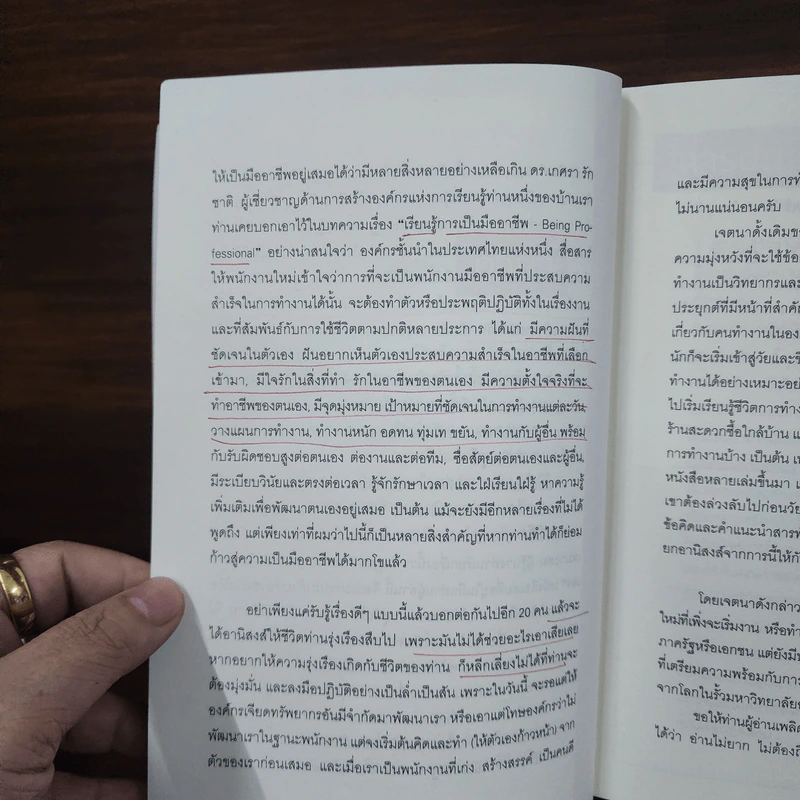 ให้เป็นมืออาชีพอยู่เสมอได้ว่ามีหลายสิ่งหลายอย่างเหลือเกิน ดร.เกศรา รัก
ชาติ ผู้เชี่ยวชาญด้านการสร้างองค์กรแห่งการเรียนรู้ท่านหนึ่งของบ้านเรา
ท่านเคยบอกเอาไว้ในบทความเรื่อง “เรียนรู้การเป็นมืออาชีพ - Being Pro-
fessional” อย่างน่าสนใจว่า องค์กรชั้นนำในประเทศไทยแห่งหนึ่ง สื่อสาร
ให้พนักงานใหม่เข้าใจว่าการที่จะเป็นพนักงานมืออาชีพที่ประสบความ
สำเร็จในการทำงานได้นั้น จะต้องทำตัวหรือประพฤติปฏิบัติทั้งในเรื่องงาน
และที่สัมพันธ์กับการใช้ชีวิตตามปกติหลายประการ ได้แก่ มีความฝันที่
ชัดเจนในตัวเอง ฝันอยากเห็นตัวเองประสบความสำเร็จในอาชีพที่เลือก
เข้ามา, มีใจรักในสิ่งที่ทำ รักในอาชีพของตนเอง มีความตั้งใจจริงที่จะ
ทำอาชีพของตนเอง, มีจุดมุ่งหมาย เป้าหมายที่ชัดเจนในการทำงานแต่ละวัน
วางแผนการทำงาน, ทำงานหนัก อดทน ทุ่มเท ขยัน, ทำงานกับผู้อื่น พร้อม
กับรับผิดชอบสูงต่อตนเอง ต่องานและต่อทีม, ซื่อสัตย์ต่อตนเองและผู้อื่น,
มีระเบียบวินัยและตรงต่อเวลา รู้จักรักษาเวลา และใฝ่เรียนใฝ่รู้ หาความรู้
เพิ่มเติมเพื่อพัฒนาตนเองอยู่เสมอ เป็นต้น แม้จะยังมีอีกหลายเรื่องที่ไม่ได้
พูดถึง แต่เพียงเท่าที่ผมว่าไปนี้ก็เป็นหลายสิ่งสำคัญที่หากท่านทำได้ก็ย่อม
ก้าวสู่ความเป็นมืออาชีพได้มากโขแล้ว
อย่าเพียงแค่รับรู้เรื่องดีๆ แบบนี้แล้วบอกต่อกันไปอีก 20 คน แล้วจะ
ได้อานิสงส์ให้ชีวิตท่านรุ่งเรืองสืบไป เพราะมันไม่ได้ช่วยอะไรเอาเสียเลย
หากอยากให้ความรุ่งเรืองเกิดกับชีวิตของท่าน ก็หลีกเลี่ยงไม่ได้ที่ท่านจะ
ต้องมุ่งมั่น และลงมือปฏิบัติอย่างเป็นล่ำเป็นสัน เพราะในวันนี้ จะรอแต่ให้
องค์กรเจียดทรัพยากรอันมีจำกัดมาพัฒนาเรา หรือเอาแต่โทษองค์กรว่าไม่
พัฒนาเราในฐานะพนักงาน แต่จงเริ่มต้นคิดและทำ (ให้ตัวเองก้าวหน้า) จาก
ตัวของเราก่อนเสมอ และเมื่อเราเป็นพนักงานที่เก่ง สร้างสรรค์ เป็นคนดี
และมีความสุขในการทำ
ไม่นานแน่นอนครับ
เจตนาดั้งเดิมข
ความมุ่งหวังที่จะใช้ข้อ
ทำงานเป็นวิทยากรและ
ประยุกต์ที่มีหน้าที่สำคั
เกี่ยวกับคนทำงานในอง
นักก็จะเริ่มเข้าสู่วัยและชี
ทำงานได้อย่างเหมาะอย่
ไปเริ่มเรียนรู้ชีวิตการทำ
ร้านสะดวกซื้อใกล้บ้าน แ
การทำงานบ้าง เป็นต้น เ
หนังสือหลายเล่มขึ้นมา เ
เขาต้องล่วงลับไปก่อนวัย
ข้อคิดและคำแนะนำสารพ
ยกอานิสงส์จากการนี้ให้กั
โดยเจตนาดังกล่าว
ใหม่ที่เพิ่งจะเริ่มงาน หรือทำ
ภาครัฐหรือเอกชน แต่ยังมีท
ที่เตรียมความพร้อมกับการ
จากโลกในรั้วมหาวิทยาลัย
ขอให้ท่านผู้อ่านเพลิด
ได้ว่า อ่านไม่ยาก ไม่ต้องถึ